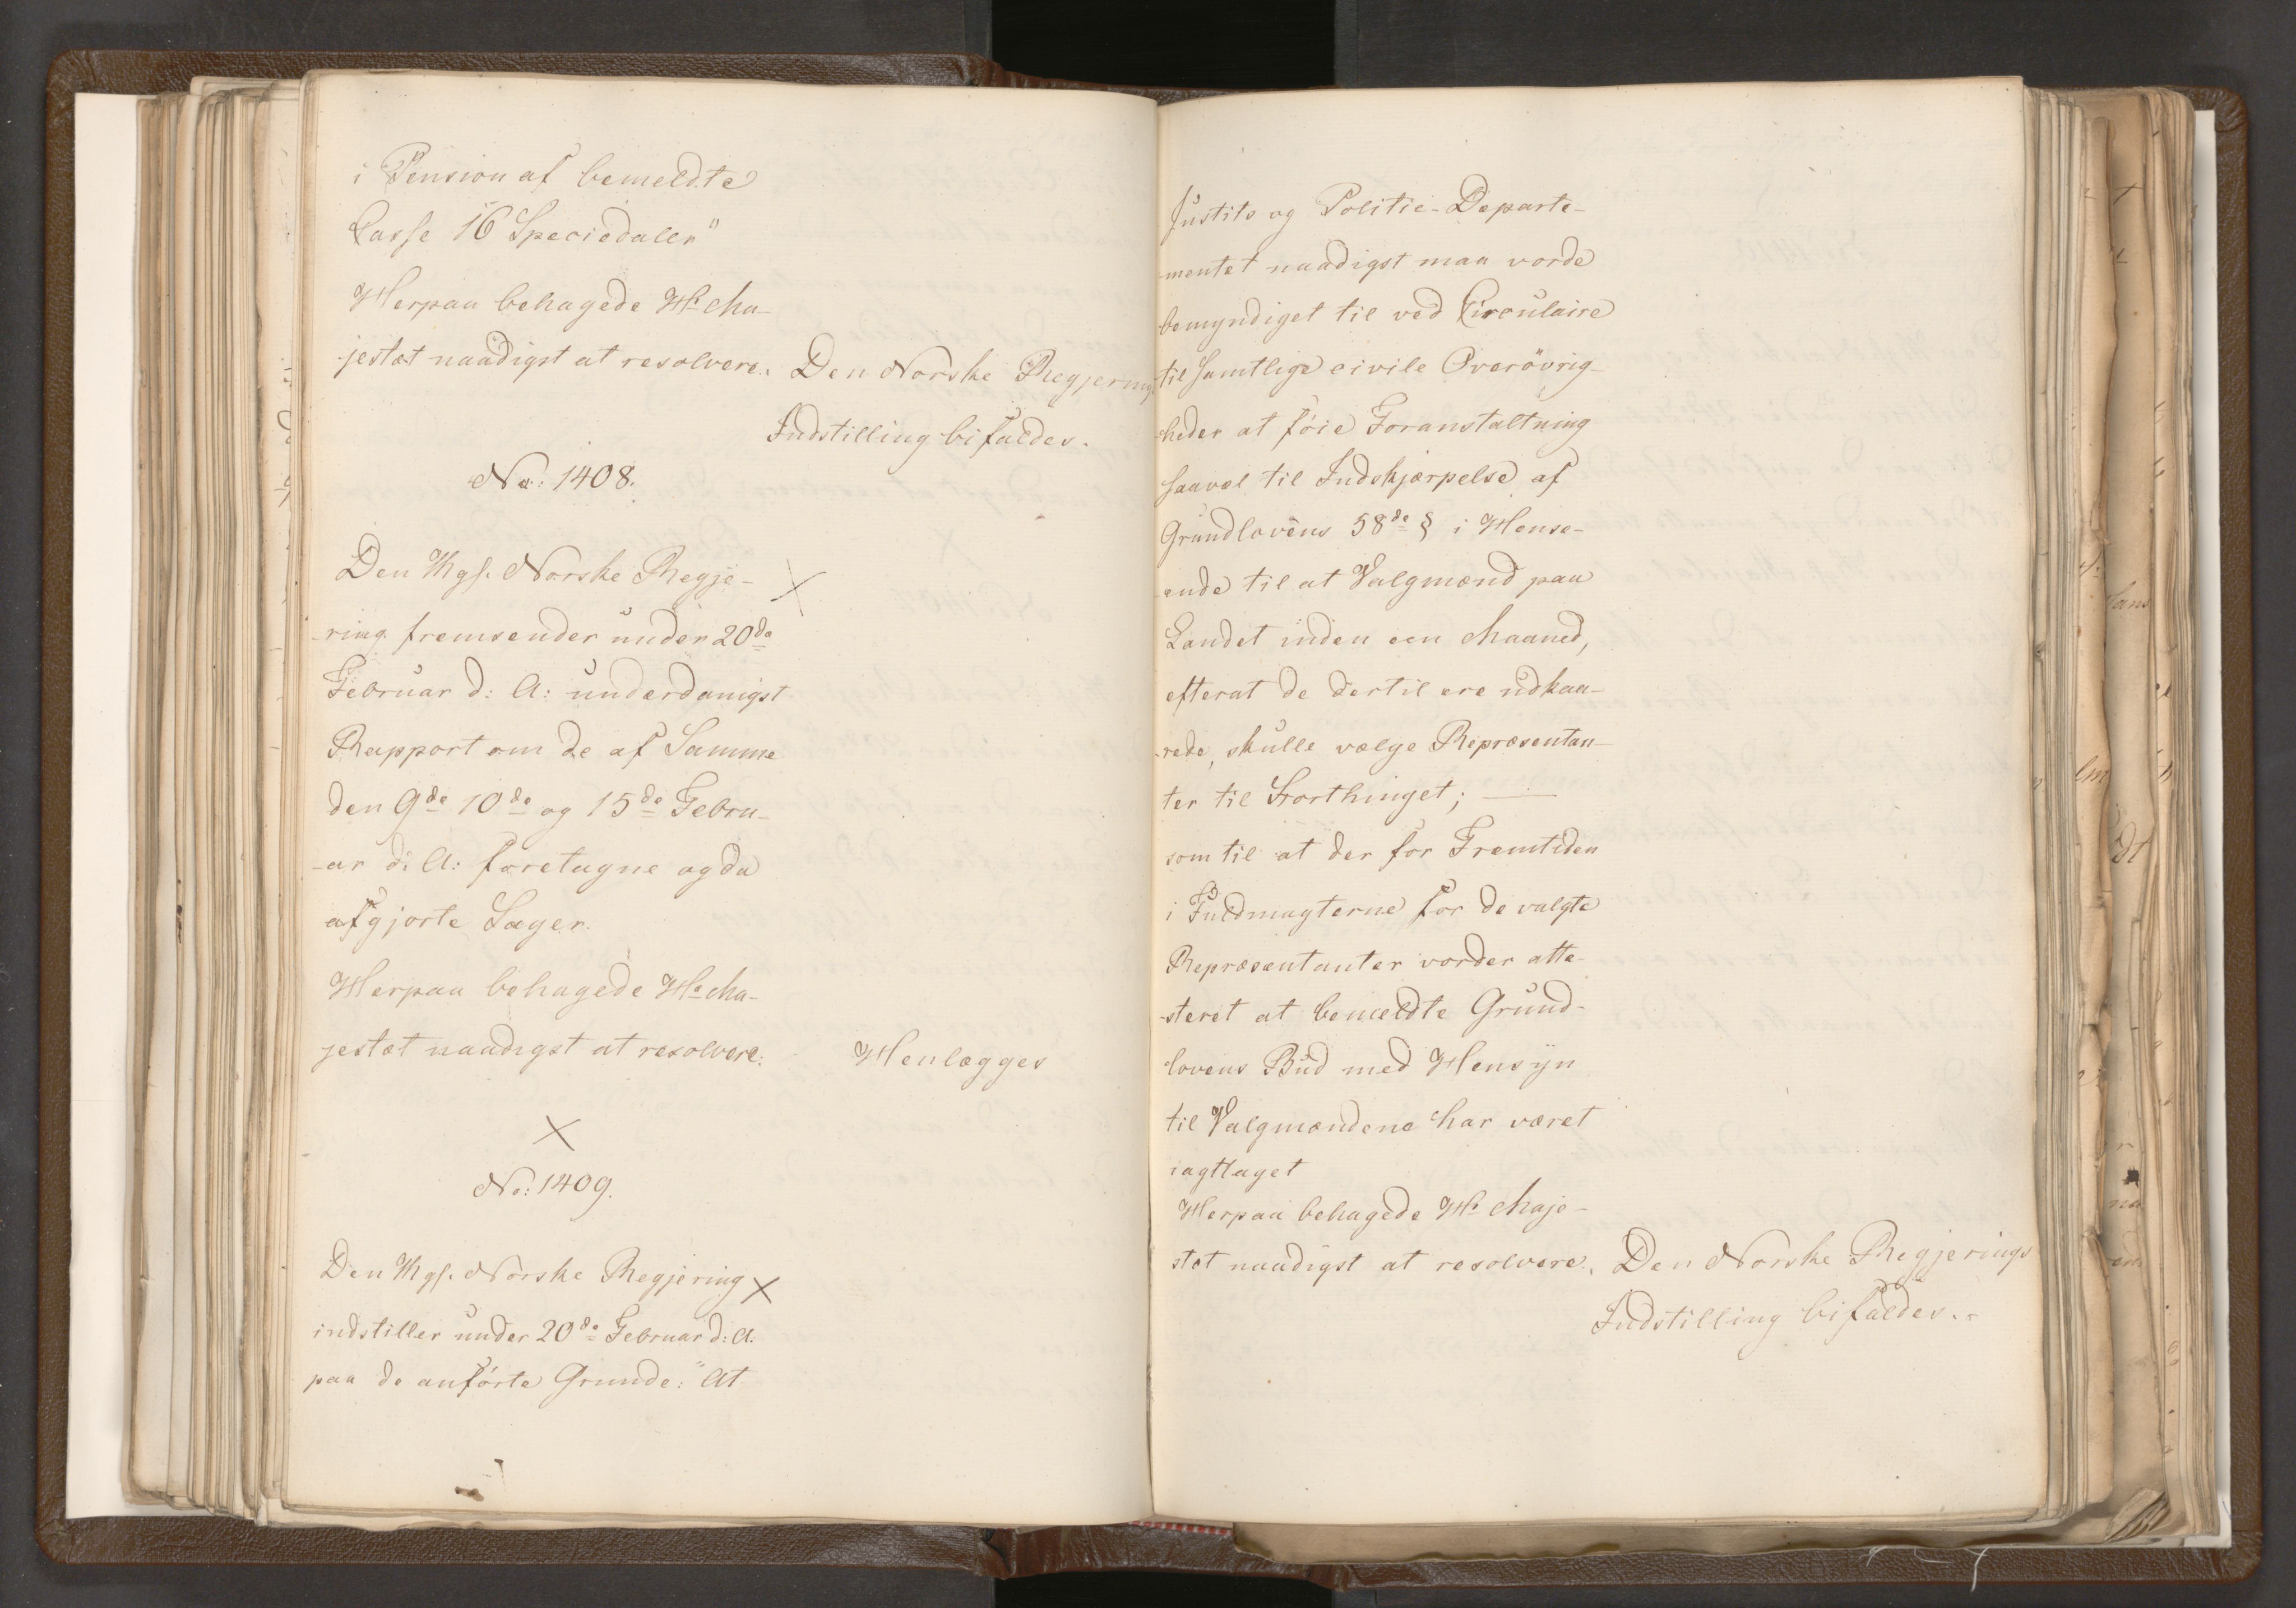 i Pension af bemeldte
Casse 16 Speciedaler"
Herpaa behagede Hs Ma-
jestæt naadigst at resolvere: Den Norske Regjerings
Indstilling bifaldes.
No: 1408.
Den Kgl. Norske Regje-
-ring fremsender under 20de
Februar d: A: underdanigst
Rapport om de af Samme
den 9de 10de og 15de Febru-
-ar d: A: foretagne og da
afgjorte Sager.
Herpaa behagede Hs Ma-
jestæt naadigst at resolvere: Henlægges
No: 1409.
Den Kgl. Norske Regjering
indstiller under 20de Februar d: A:
paa de anförte Grunde: "At
Justits og Politie-Departe-
-mentet naadigst maa vorde
bemyndiget til ved Circulaire
til samtlige civile Overövrig-
-heder at föie Foranstaltning
saavel til Indskjærpelse af
Grundlovens 58de § i Hense-
-ende til at Valgmænd paa
Landet inden een Maaned,
efterat de dertil ere udkaa-
-rede, skulle vælge Repræsentan-
ter til Storthinget; —
som til at der for Fremtiden
i Fuldmagterne for de valgte
Repræsentanter vorder atte-
-steret at bemeldte Grund-
lovens Bud med Hensyn
til Valgmændene har været
iagttaget
Herpaa behagede Hs Maje-
stæt naadigst at resolvere: Den Norske Regjerings
Indstilling bifaldes.